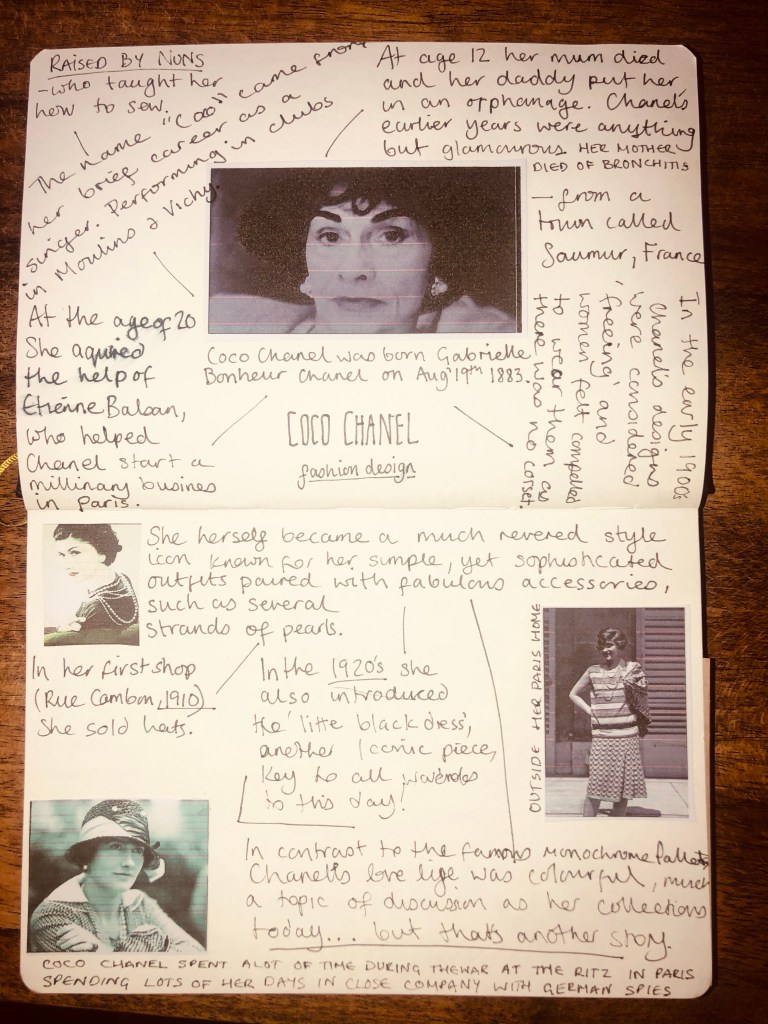 RAISED BY NUNS
- who taught her
how to sew.
The name "Coco" came from
her brief career as a
singer. Performing in clubs
in Moulins & Vichy.
At age 12 her mum died
and her daddy put her
in an orphanage. Chanel's
earlier years were anything
but glamourous. HER MOTHER
DIED OF BRONCHITIS
- from a
town called
Saumur, France
In the early 1900s
Chanel's designs
were considered
'freeing', and
women felt compelled
to wear them as
there was no corset.
At the age of 20
She aquired
the help of
Etienne Balsan,
who helped
Chanel start a
millinary busines
in Paris.
Coco Chanel was born Gabrielle
Bonheur Chanel on Aug 19th 1883.
COCO CHANEL
fashion design
She herself became a much revered style
icon known for her simple, yet sophisticated
outfits paired with fabulous accessories,
such as several
strands of pearls.
In her first shop
(Rue Cambon, 1910)
She sold hats.
In the 1920's she
also introduced
the 'litte black dress',
another iconic piece,
key to all wardrobes
to this day!
OUTSIDE HER PARIS HOME
In contrast to the famous monochrome Pallets
Chanel's love life was colourful, much
a topic of discussion as her collections
today... but thats another story.
COCO CHANEL SPENT ALOT OF TIME DURING THE WAR AT THE RITZ IN PARIS
SPENDING LOTS OF HER DAYS IN CLOSE COMPANY WITH GERMAN SPIES